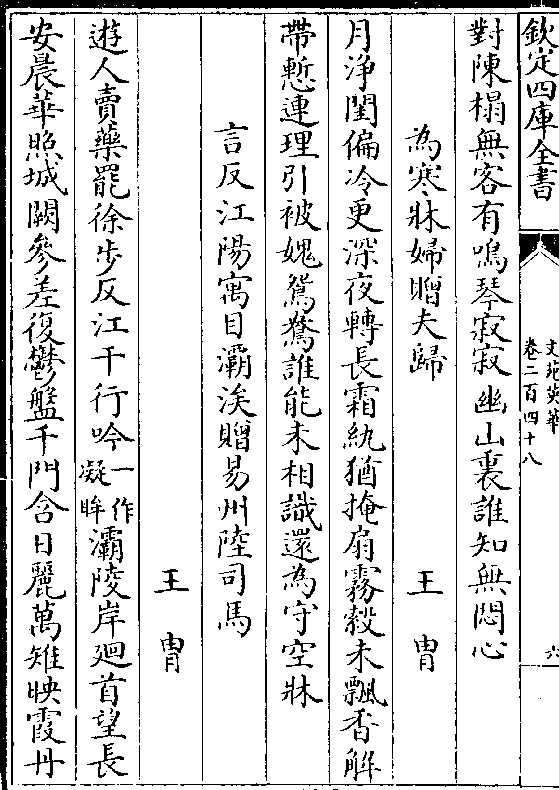 欽定四庫全書
文苑英華
卷二百四十八
六
對陳榻無客有鳴琴寂寂幽山裏誰知無悶心
為寒牀婦贈夫歸 王胄
月浄閨偏冷更深夜轉長霜紈猶掩扇霧縠未飄香解
帶慙連理引被媿鴛鴦誰能未相識還為守空牀
言反江陽寓目灞涘贈易州陸司馬
王胄
遊人賣藥罷徐步反江干行吟一作凝眸灞陵岸廻首望長
安晨華照城闕參差復鬱盤千門含日麗萬雉映霞丹